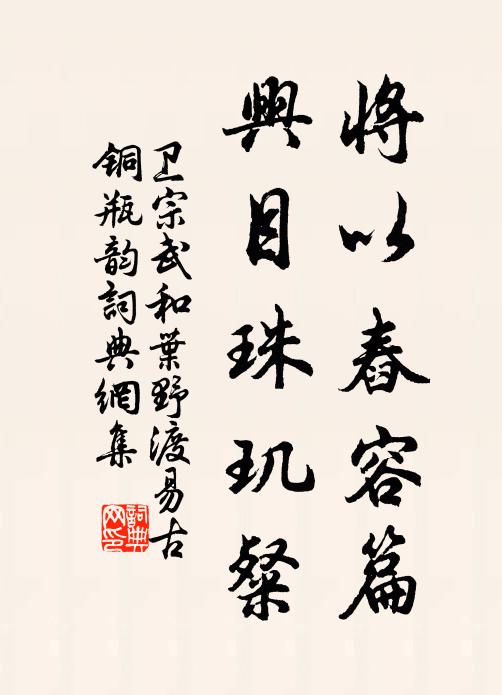 將以舂容篇
興目珠玑粲
卫宗武和葉野渡易古
銅瓶韵詞典網集
詞典
网印